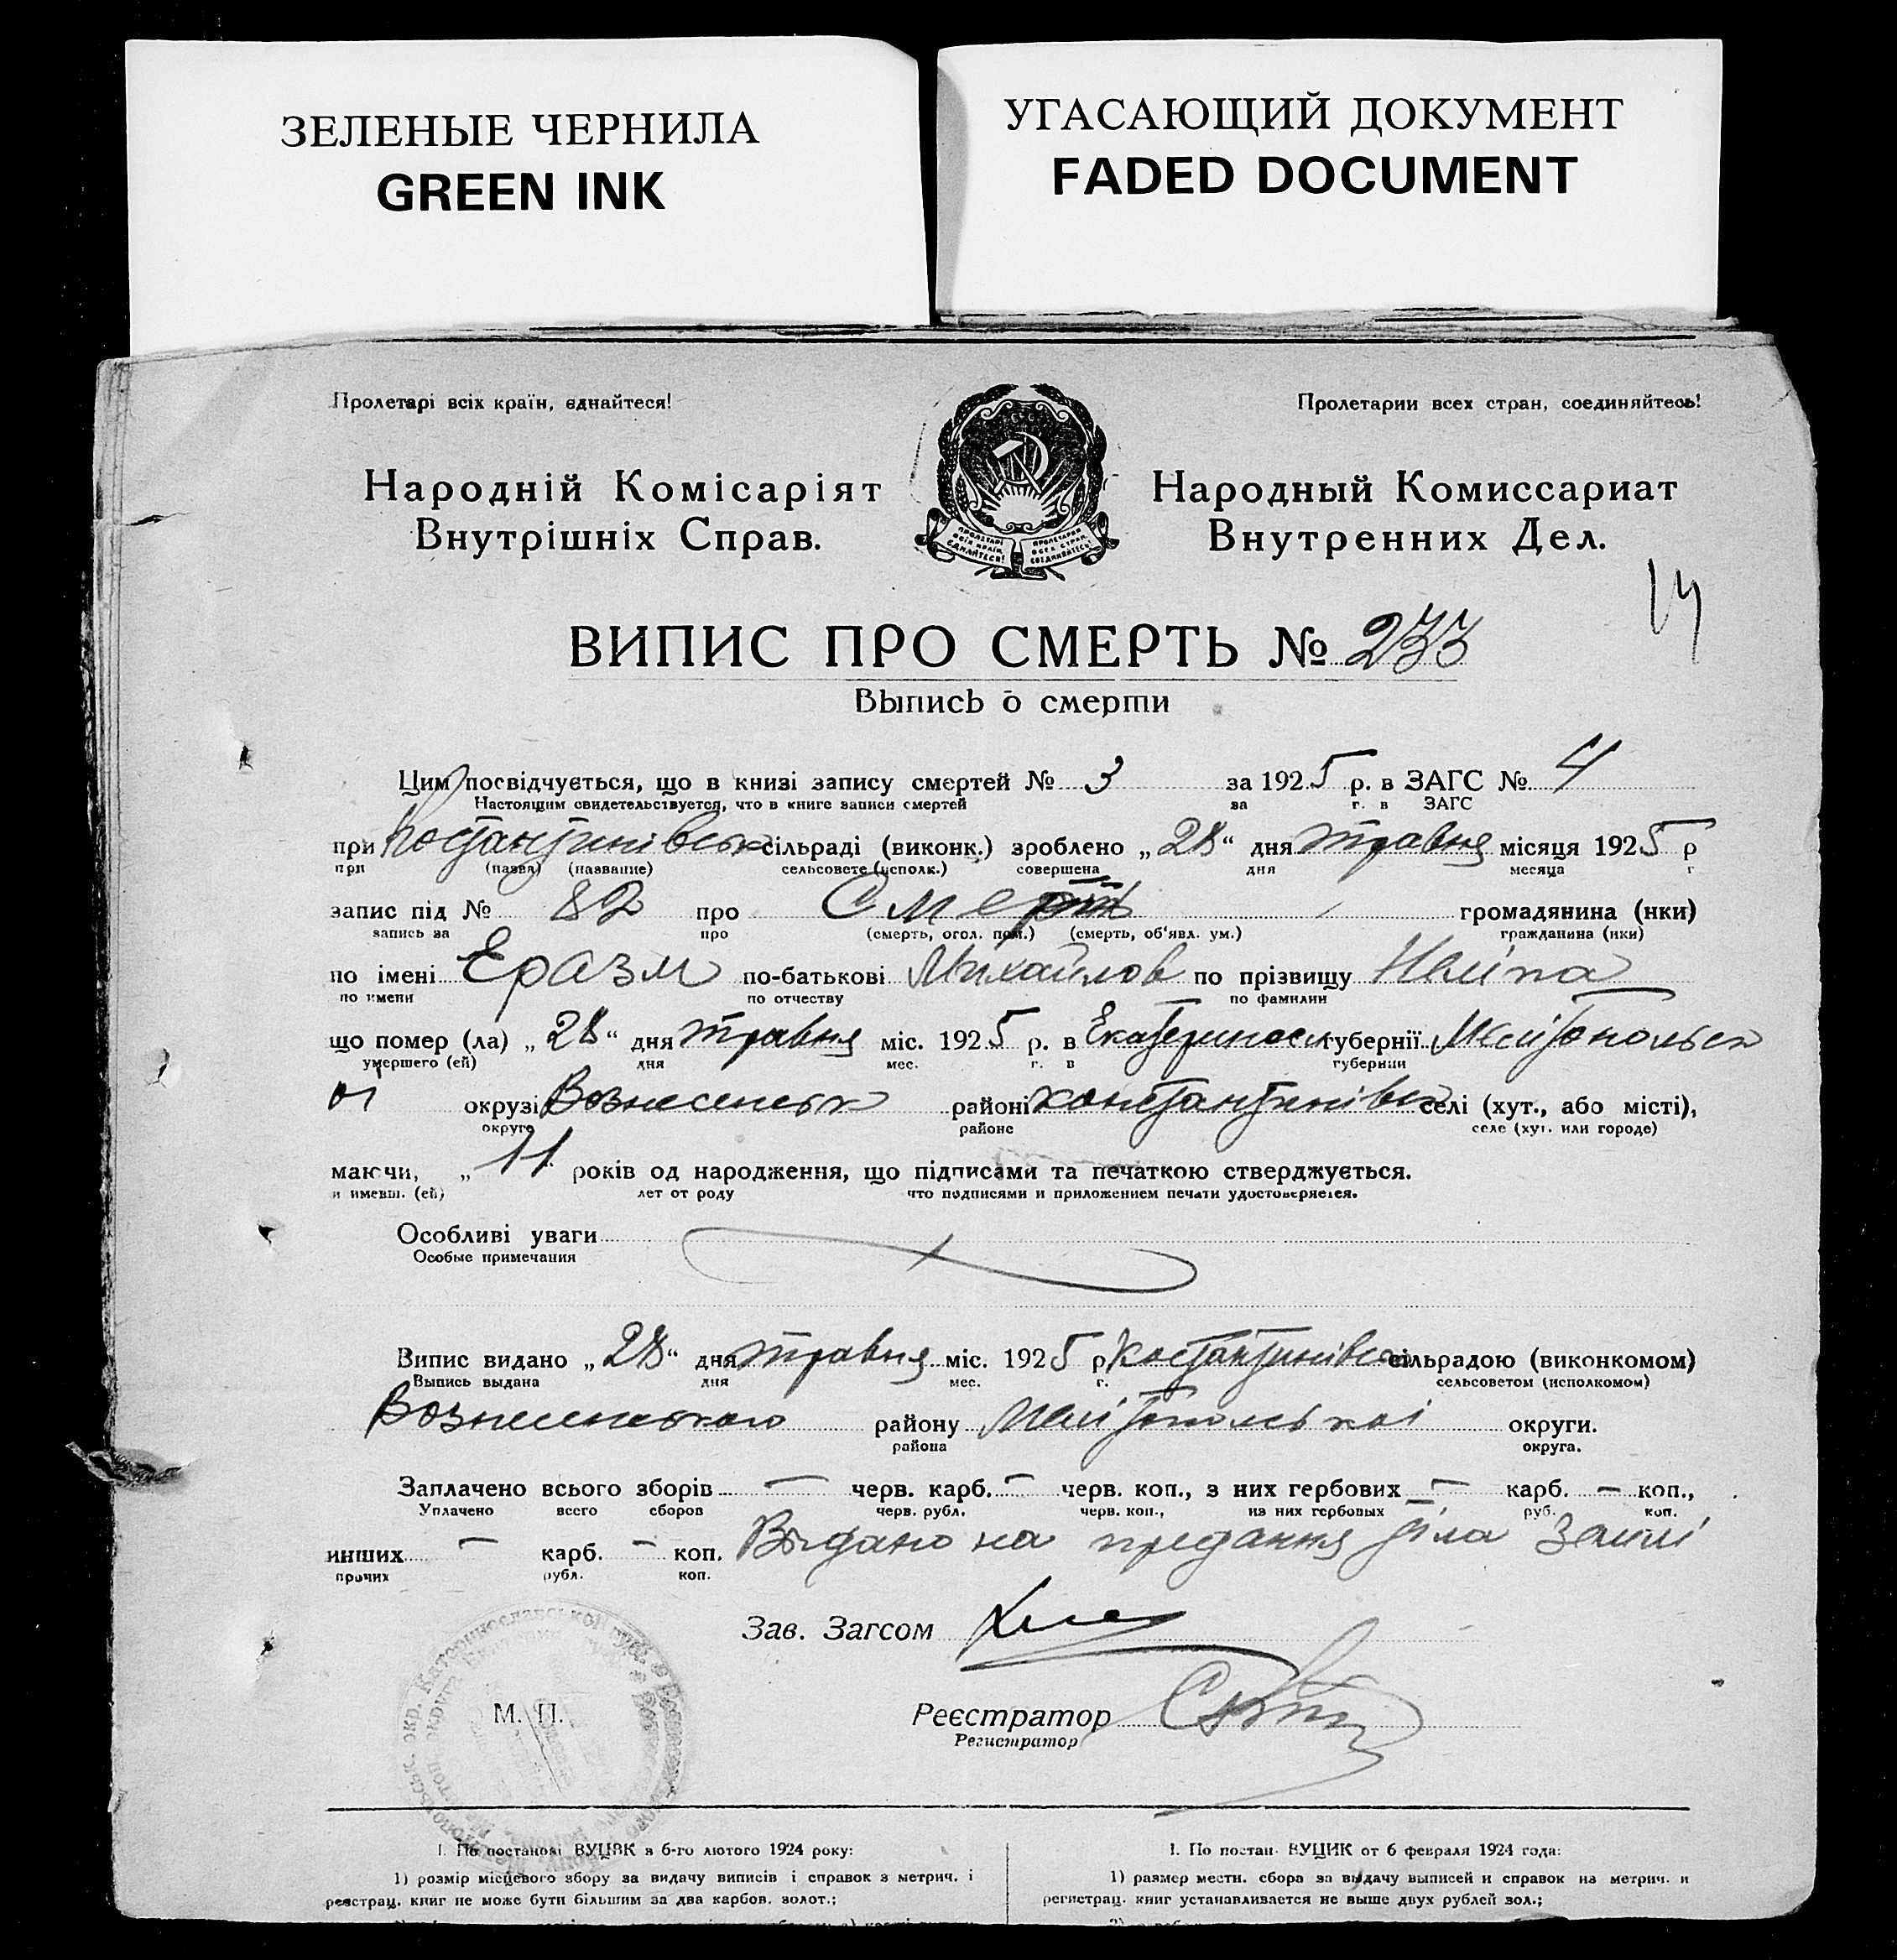 ЗЕЛЕНЫЕ ЧЕРНИЛА
GREEN INK
УГАСАЮЩИЙ ДОКУМЕНТ
FADED DOCUMENT
Пролетарі всіх країн, єднайтеся!
Пролетарии всех стран, соединяйтесь!
Народній Комісаріят
Внутрішніх Справ.
Народный Комиссариат
Внутренних Дел.
14
ВИПИС ПРО СМЕРТЬ № 233
Выпись о смерти
Цим посвідчується, що в книзі запису смертей № 3 за 1925 р. в ЗАГС № 4
Настоящим свидетельствуется, что в книге записи смертей за г. в ЗАГС
при Костянтинівськ сільраді (виконк.) зроблено „28“ дня травня місяця 1925 р
при (назва) (название) сельсовете (исполк.) совершена дня месяца г
запис під № 82 про Смерть громадянина (нки)
запись за про (смерть, огол. пом.) (смерть, об'явл. ум.) гражданина (нки)
по імені Еразм по-батькові Михайлов по прізвищу Неліпа
по имени по отчеству по фамилии
що помер (ла) „28“ дня травня міс. 1925 р. в Екатериносл губернії Мелітопольськ
умершего (ей) дня мес. г. в губернии
ої окрузі Вознесенськ районі Константинівск селі (хут., або місті),
округе районе селе (хут. или городе)
маючи, „11 років од народження, що підписами та печаткою стверджується.
и имевш. (ей) лет от роду что подписями и приложением печати удостоверяется.
Особливі уваги
Особые примечания
Випис видано „28“ дня травня міс. 1925 р Костянтинівск сільрадою (виконкомом)
Выпись выдана дня мес. г. сельсоветом (исполкомом)
Вознесенського району Мелітопольскої округи.
района округа.
Заплачено всього зборів — черв. карб. — черв. коп., з них гербових — карб. — коп.,
Уплачено всего сборов черв. рубл. черв. коп., из них гербовых руб. коп.
инших — карб. — коп. Видано на предання тіла землі
прочих рубл. коп.
Зав. Загсом
М. П.
Реєстратор
Регистратор
1. По постанові ВУЦВК з 6-го лютого 1924 року:
1) розмір місцевого збору за видачу виписів і справок з метрич. і
реєстрац. книг не може бути більшим за два карбов. золот.;
1. По постан. ВУЦИК от 6 февраля 1924 года:
1) размер местн. сбора за выдачу выписей и справок из метрич. и
регистрац. книг устанавливается не выше двух рублей зол.;